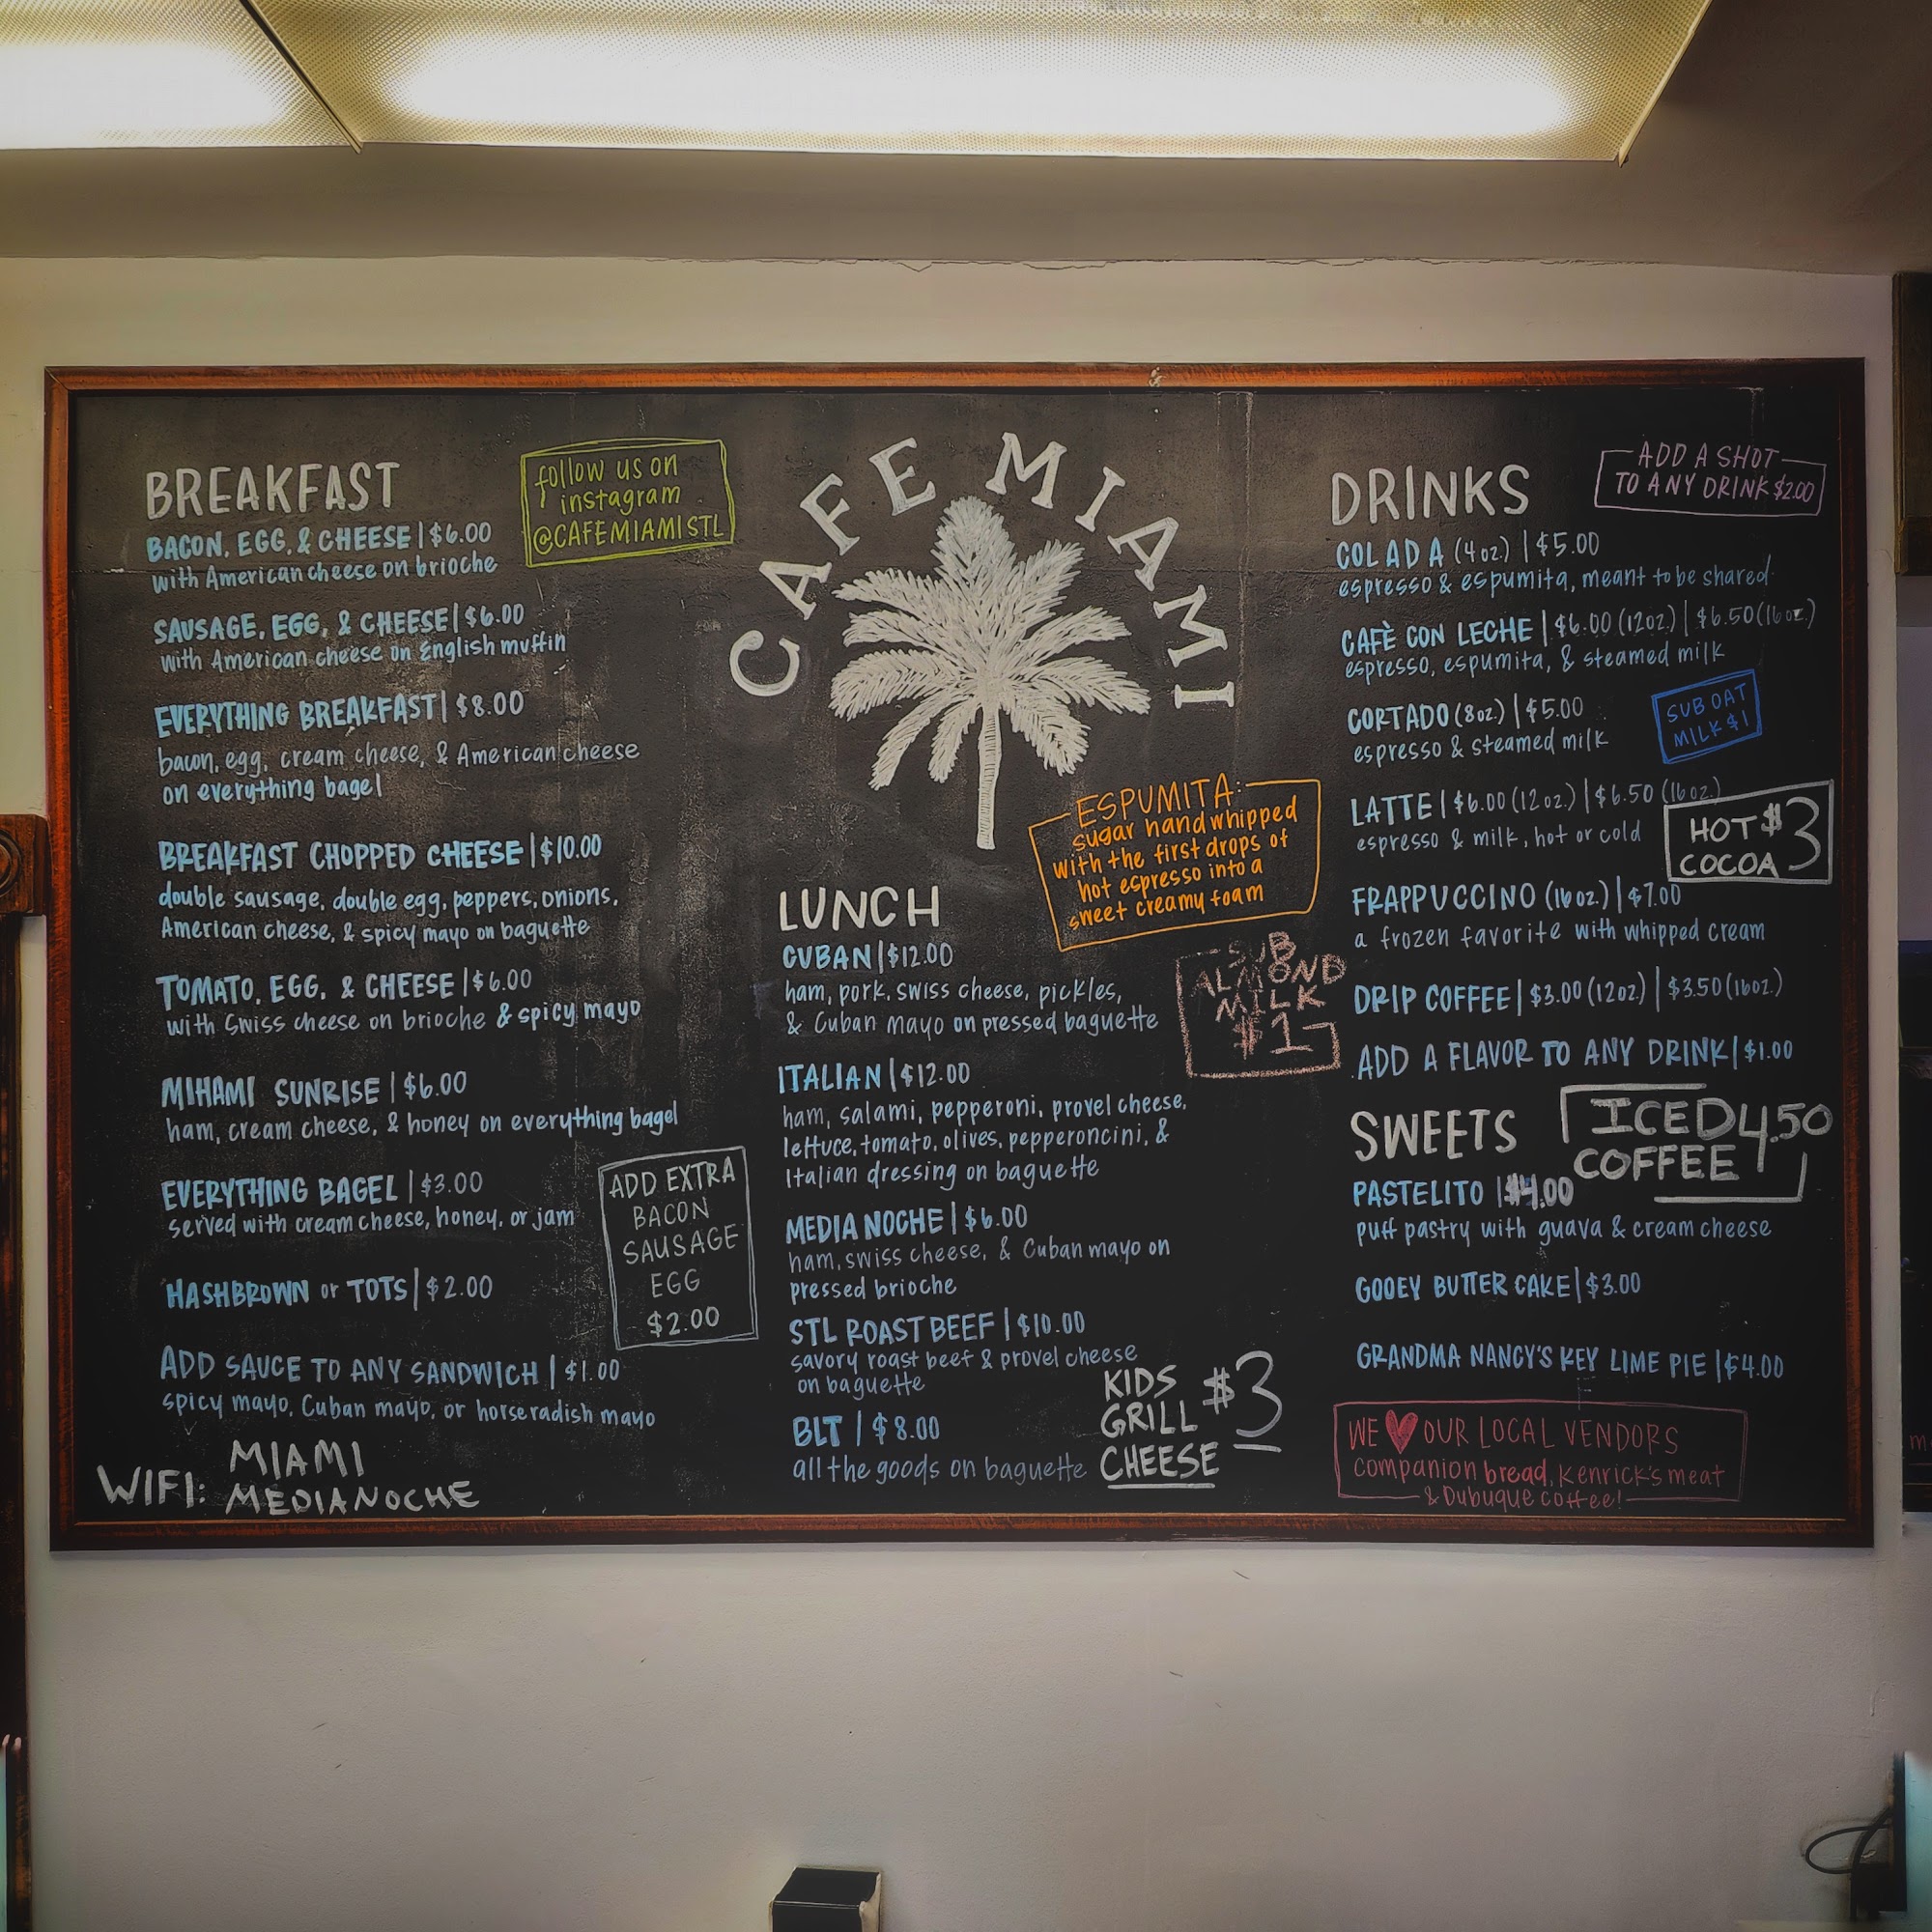 BREAKFAST
BACON, EGG, & CHEESE | $6.00
with American cheese on brioche
SAUSAGE, EGG, & CHEESE | $6.00
with American cheese on English muffin
EVERYTHING BREAKFAST | $8.00
bacon, egg, cream cheese, & American cheese
on everything bagel
BREAKFAST CHOPPED CHEESE | $10.00
double sausage, double egg, peppers, onions,
American cheese, & spicy mayo on baguette
TOMATO, EGG, & CHEESE | $6.00
with Swiss cheese on brioche & spicy mayo
MIHAMI SUNRISE | $6.00
ham, cream cheese, & honey on everything bagel
EVERYTHING BAGEL | $3.00
served with cream cheese, honey, or jam
HASHBROWN or TOTS | $2.00
ADD SAUCE TO ANY SANDWICH | $1.00
spicy mayo, Cuban mayo, or horseradish mayo
WIFI: MIAMI
MEDIANOCHE
follow us on
instagram
@CAFEMIAMISTL
ADD EXTRA
BACON
SAUSAGE
EGG
$2.00
CAFE MIAMI
ESPUMITA:
sugar hand whipped
with the first drops of
hot espresso into a
sweet creamy foam
LUNCH
CUBAN | $12.00
ham, pork, swiss cheese, pickles,
& Cuban mayo on pressed baguette
ITALIAN | $12.00
ham, salami, pepperoni, provel cheese,
lettuce, tomato, olives, pepperoncini, &
Italian dressing on baguette
MEDIA NOCHE | $6.00
ham, swiss cheese, & Cuban mayo on
pressed brioche
STL ROAST BEEF | $10.00
savory roast beef & provel cheese
on baguette
BLT | $8.00
all the goods on baguette
KIDS
GRILL
CHEESE
$3
SUB
ALMOND
MILK
$1
DRINKS
ADD A SHOT
TO ANY DRINK $2.00
COLADA (4oz.) | $5.00
espresso & espumita, meant to be shared
CAFÈ CON LECHE | $6.00 (12oz.) | $6.50 (16oz.)
espresso, espumita, & steamed milk
CORTADO (8oz.) | $5.00
espresso & steamed milk
SUB OAT
MILK $1
LATTE | $6.00 (12oz.) | $6.50 (16oz.)
espresso & milk, hot or cold
HOT
COCOA
$3
FRAPPUCCINO (16oz.) | $7.00
a frozen favorite with whipped cream
DRIP COFFEE | $3.00 (12oz.) | $3.50 (16oz.)
ADD A FLAVOR TO ANY DRINK | $1.00
ICED
COFFEE
4.50
SWEETS
PASTELITO | $4.00
puff pastry with guava & cream cheese
GOOEY BUTTER CAKE | $3.00
GRANDMA NANCY'S KEY LIME PIE | $4.00
WE ♥ OUR LOCAL VENDORS
companion bread, Kenrick's meat
& Dubuque coffee!